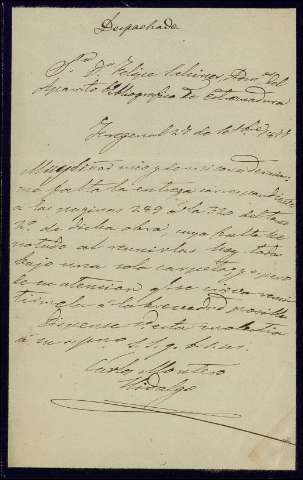 Despachada
Sr. Dn. Felipe
Aparato Bibliografico de Estremadura
Fregenal 27 de
Muy Señor mio y de mi consideracion:
me falta la entrega correspondiente
a las paginas 249 á la 320 del tomo
2º de dicha obra, cuya falta he
notado al reunirlas hoy todas
bajo una sola carpeta, y espero
de su atencion que se sirva remi
tirmela á la brevedad posible
Dispense V esta molestia
á su afmo. S. S. q. b. s. m.
Carlos Montero
Hidalgo